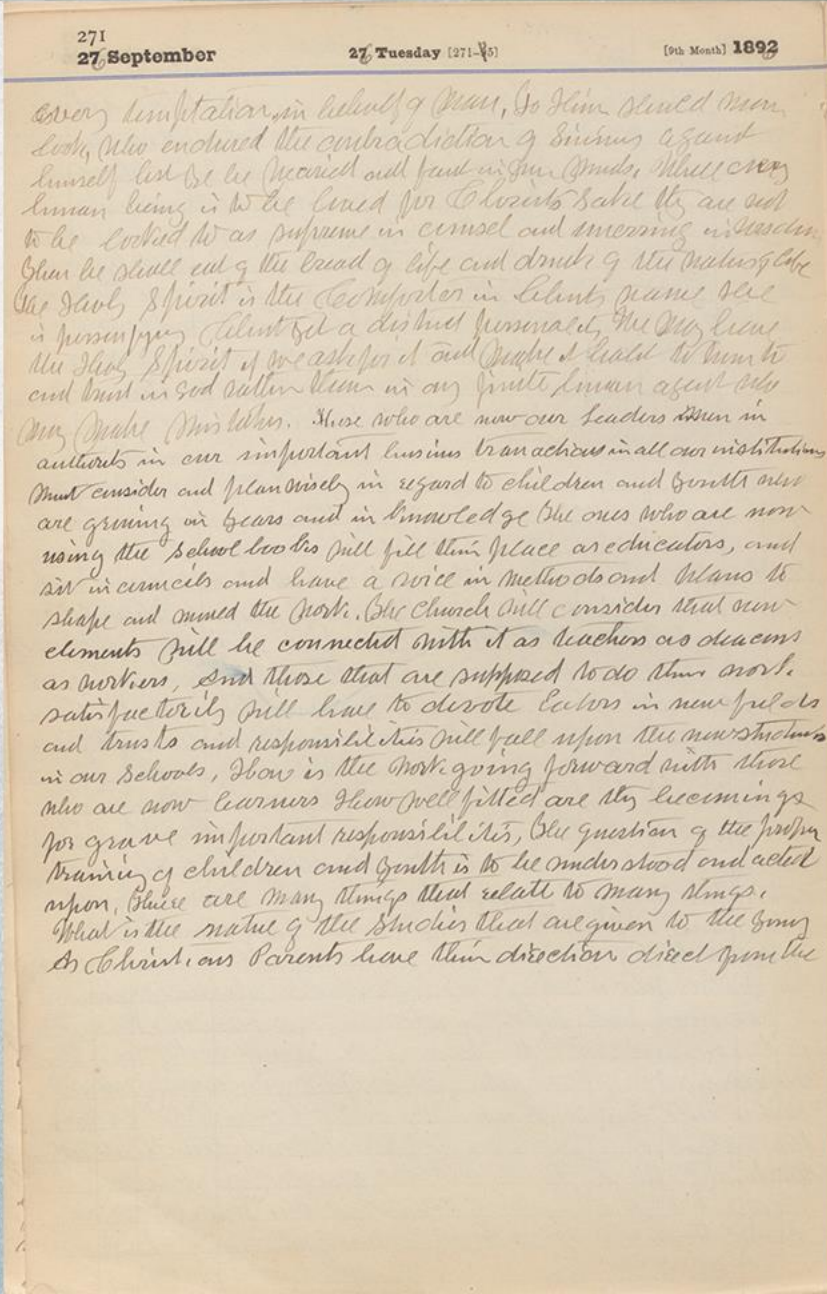 271
27 September 27 Tuesday [271-95] [9th Month] 1892
every temptation, in behalf of man, To Him should man
look, who endured the contradiction of Sinners against
himself lest ye be wearied and faint in your minds. While every
human being is to be loved for Christs sake they are not
to be looked to as supreme in counsel and unerring in wisdom
shall eat of the bread of life and drink of the water of life
The Holy Spirit is the Comforter in Christs name
is personifying Christ yet a distinct personality We may have
the Holy Spirit if we ask for it and make it habit to turn to
and trust in God rather than in any finite human agent who
may make mistakes. Those who are now our Leaders men in
authority in our important business transactions in all our institutions
must consider and plan wisely in regard to children and youth who
are growing in years and in Knowledge The ones who are now
using the school books will fill their place as educators, and
sit in councils and have a voice in methods and plans to
shape and mould the work. The church will consider that new
elements will be connected with it as teachers as deacons
as workers, and those that are supposed to do this work
satisfactorily will have to devote Labors in new fields
and trusts and responsibilities will fall upon the new students
in our Schools, How is the work going forward with those
who are now learners How well fitted are they becomings
for grave important responsibilities, The question of the proper
training of children and youth is to be understood and acted
upon, There are many things that relate to many things.
What is the nature of the studies that are given to the young
As Christians Parents have their direction direct from the